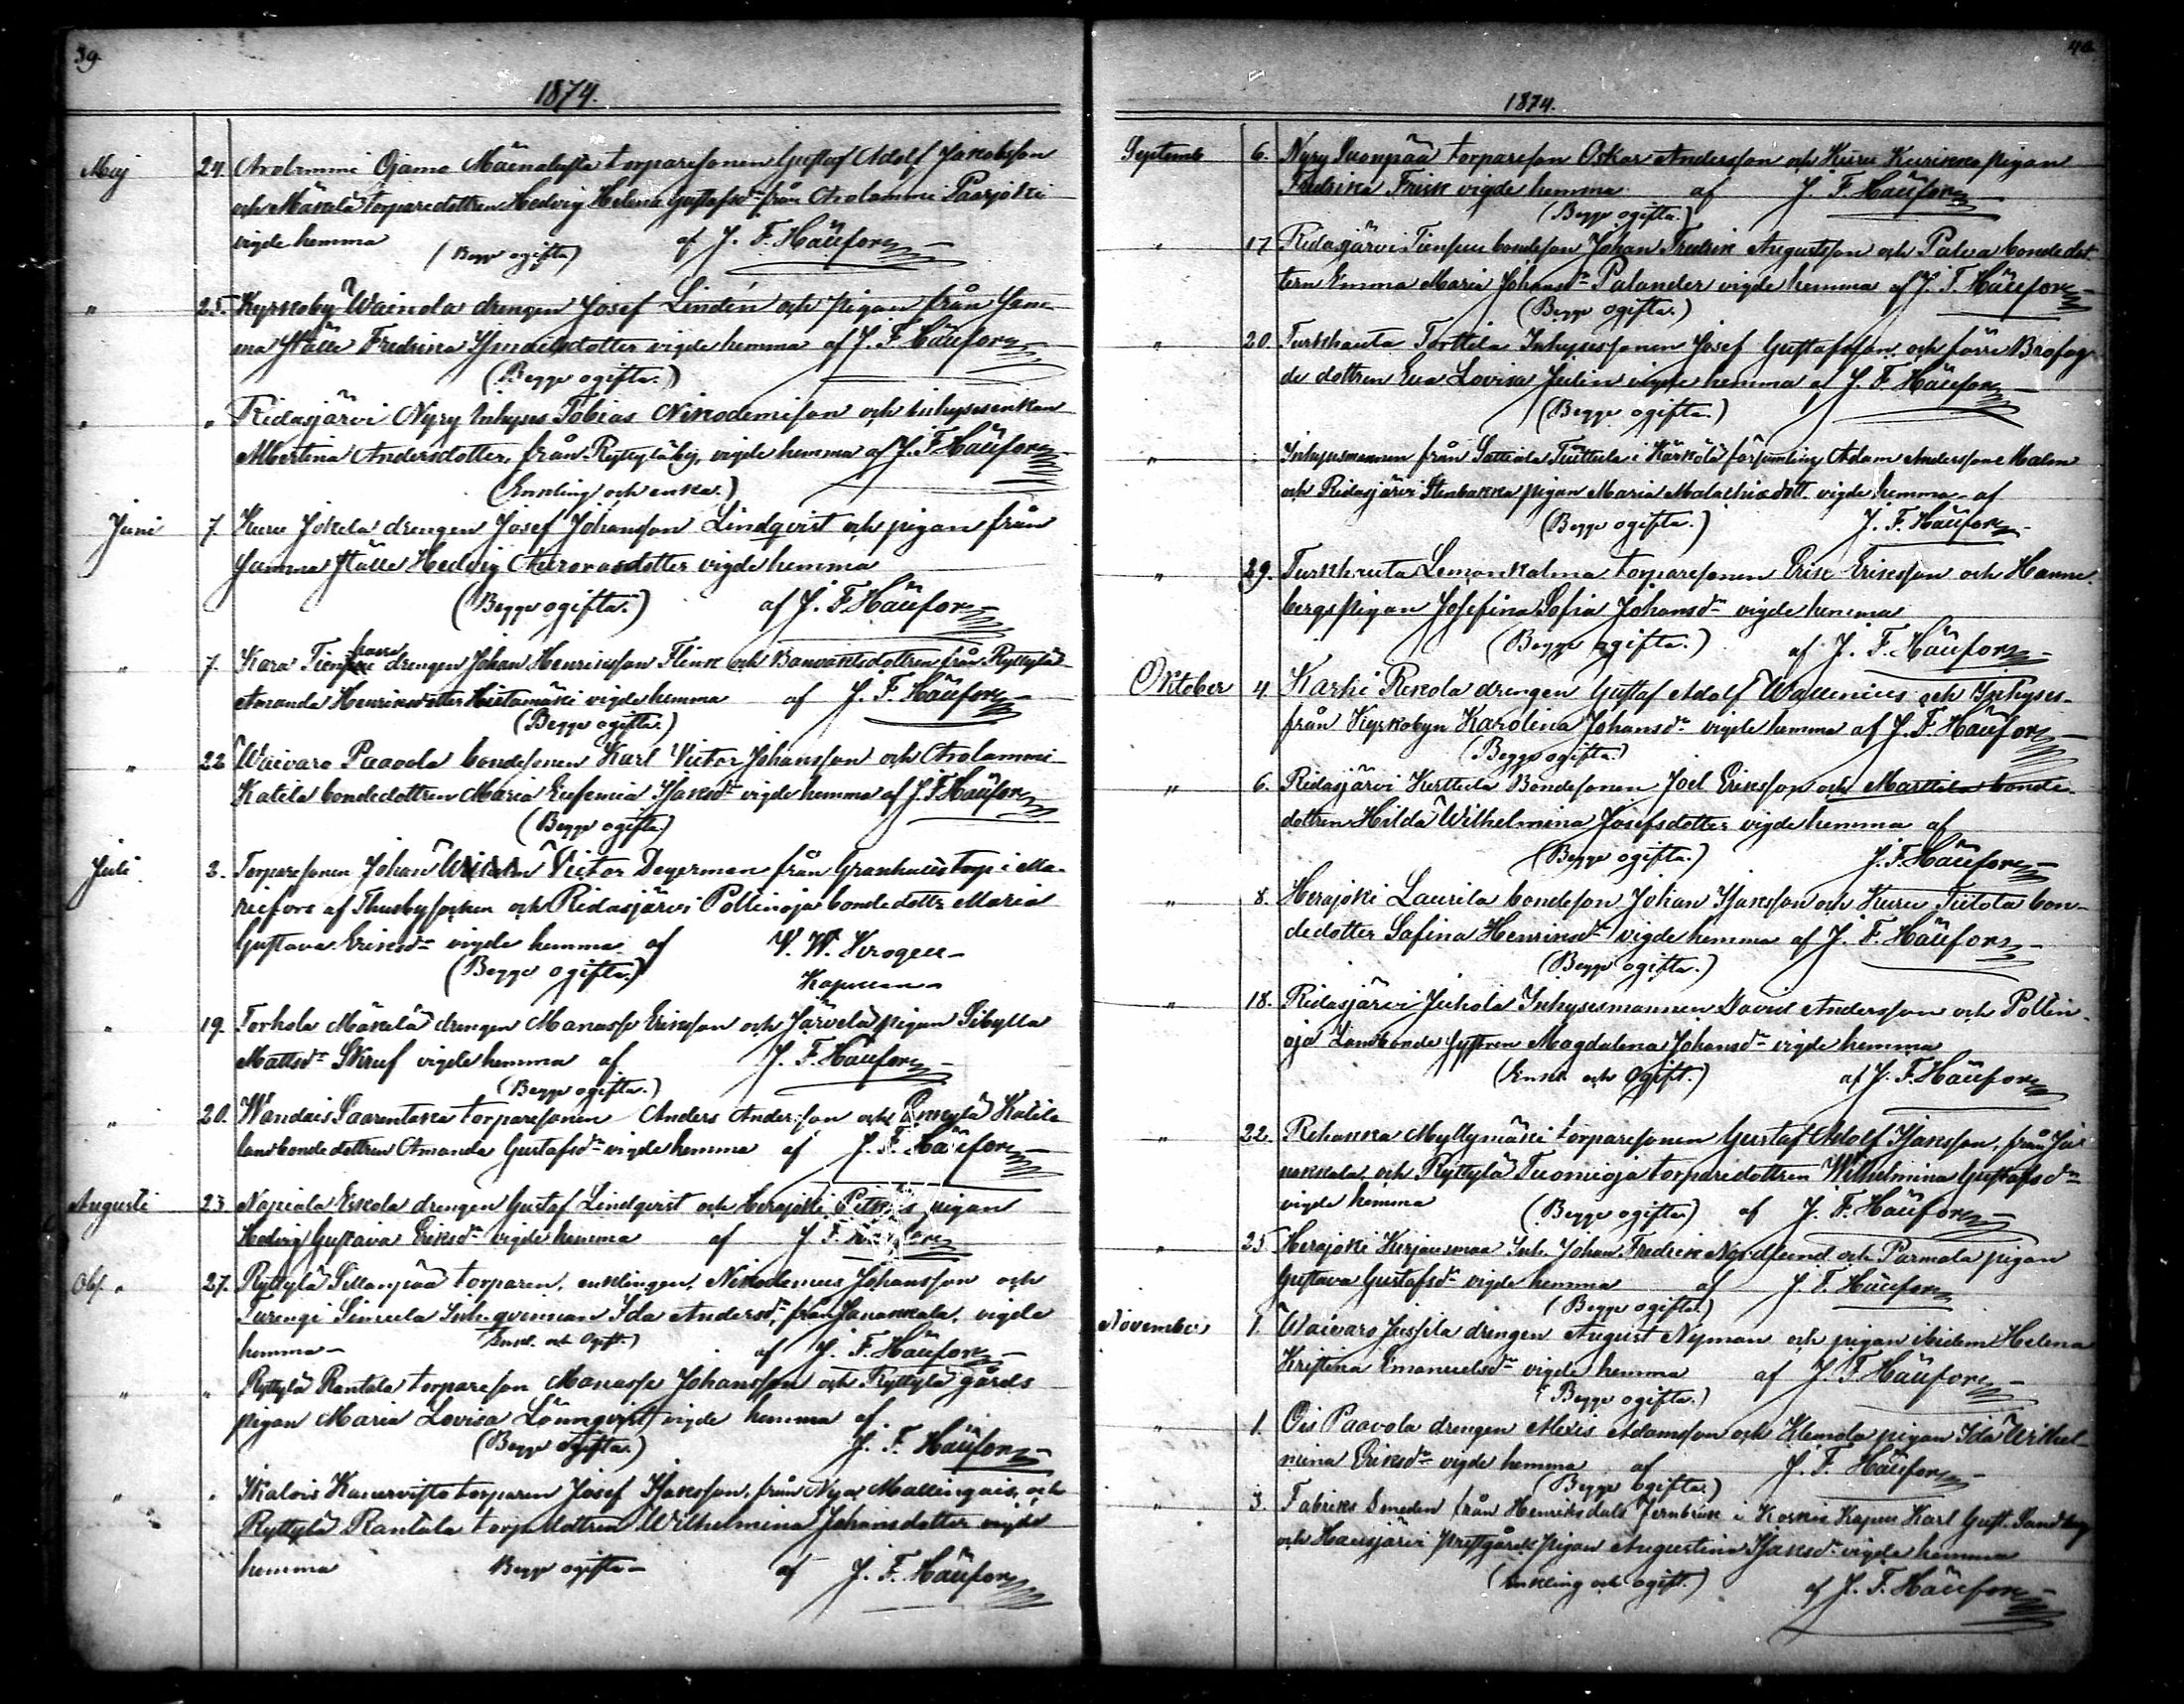 39.
1874.
Maj 24. Arolammi Ojamo Mäenalusta torparesonen Gustaf Adolf Jakobsson
och Mäkelä torparedottren Hedvig Helena Gustafsdr från Arolammi Paarjoki
vigde hemma (Begge ogifta) af J. F. Häufors
" 25. Kyrkoby Wainola drengen Josef Lindén och pigan från sam-
ma ställe Fredrika Ismaelsdotter vigde hemma af J. F. Häufors
(Begge ogifta.)
" " Ridasjärvi Nyry Inhyses Tobias Nikodemisson och inhysesenkan
Albertina Andersdotter, från Ryttyläby, vigde hemma af J. F. Häufors
(Enkling och enka.)
Juni 7. Kuru Jokela drengen Josef Johansson Lindqvist och pigan från
samma ställe Hedvig Aurorasdotter vigde hemma
(Begge ogifta.) af J. F. Häufors
" 7. Kara drengen Johan Henriksson Flink och Banvaktsdottren från Ryttylä
Amanda Henriksdotter Hietamäki vigde hemma af J. F. Häufors
(Begge ogifta.)
" 22 Waivaro Paavola bondesonen Karl Victor Johansson och Arolammi
Katila bondedottren Maria Eufemia Isaksdr vigde hemma af J. F. Häufors
(Begge ogifta)
Juli 2. Torparesonen Johan Victor Degerman från Granhults torp i Ma-
riefors af Thusby socken och Ridasjärvi Pollinoja bondedottr Maria
Gustava Eriksdr vigde hemma af V. W. Krogell
(Begge ogifta.) Kapellan
" 19. Torhola Mäkelä drengen Manasse Eriksson och Järvelä pigan Sibylla
Mattsdr Skruf vigde hemma af J. F. Häufors
(Begge ogifta.)
" 20. Wandais Saarentaka torparesonen Anders Andersson och Katila
landbondedottren Amanda Gustafsdr vigde hemma af J. F. Häufors
Augusti 23. Napiala Eskola drengen Gustaf Lindqvist och Herajoki pigan
Hedvig Gustava Eriksdr vigde hemma af J. F. Häufors
Obs. " 27. Ryttylä Sillanpää torparen, enklingen, Nikodemus Johansson och
Turengi Simula Inh. qvinnan Ida Andersdr, från Janakkala, vigde
hemma (Enkl. och Ogift.) af J. F. Häufors
" " Ryttylä Rantala torpareson Manasse Johansson och Ryttylä gårds
pigan Maria Lovisa Lönnqvist vigde hemma af
(Begge ogifta.) J. F. Häufors
" " Ikalois torparen Josef Isaksson, från Nya Mallingais, och
Ryttylä Rantala torp. dottren Wilhelmina Johansdotter vigde
hemma Begge ogifta af J. F. Häufors
40.
1874.
Septemb 6. Nyry Suonpää torpareson Oskar Andersson och Kuru Kurikko pigan
Fredrika Frisk vigde hemma af J. F. Häufors
(Begge ogifta.)
" 17 Ridasjärvi Tiensuu bondeson Johan Fredrik Augustsson och Palva bondedot-
tern Emma Maria Johansdr Palander vigde hemma af J. F. Häufors
(Begge ogifta.)
" 20. Turkhauta Torttila Inhysessonen Josef Gustafsson och förre Brofog-
de dottren Eva Lovisa Julin vigde hemma af J. F. Häufors
(Begge ogifta.)
" " Inhysesmannen från Sattiala Tuttula i Kärkölä församling Adam Andersson Malm
och Ridasjärvi Stenbacka pigan Maria Malachiædott. vigde hemma af
(Begge ogifta.) J. F. Häufors
" 29. Turkhauta Lemonkalma torparesonen Erik Eriksson och Hanne-
bergs pigan Josefina Sofia Johansdr vigde hemma
(Begge ogifta.) af J. F. Häufors
Oktober 4. Karhi Rekola drengen Gustaf Adolf Wallenius och Inhyses
från Kyrkobyn Karolina Johansdr vigde hemma af J. F. Häufors
(Begge ogifta.)
" 6. Ridasjärvi Kerttula Bondesonen Joel Eriksson och Marttila bonde-
dottren Hilda Wilhelmina Josefsdotter vigde hemma af
(Begge ogifta.) J. F. Häufors
" 8. Herajoki Laurila bondeson Johan Isaksson och Kuru Tiitola bon-
dedotter Safina Henriksdr vigde hemma af J. F. Häufors
(Begge ogifta.)
" 18. Ridasjärvi Juhola Inhysesmannen David Andersson och Pollin-
oja Landbonde systren Magdalena Johansdr vigde hemma
(Enkl. och Ogift.) af J. F. Häufors
" 22. Rehakka Myllymäki torparesonen Gustaf Adolf Isaksson, från Ja-
nakkala, och Ryttylä Tuomioja torparedottren Wilhelmina Gustafsdr
vigde hemma (Begge ogifta) af J. F. Häufors
" 25 Herajoki Kirjansmaa Inh. Johan Fredrik Nordlund och Parmala pigan
Gustava Gustafsdr vigde hemma af J. F. Häufors
(Begge ogifta.)
November 1. Waivaro Jussila drengen August Nyman och pigan ibidem Helena
Kristina Emanuelsdr vigde hemma af J. F. Häufors
(Begge ogifta.)
" 1. Ois Paavola drengen Alexis Adamsson och Klemola pigan Ida Wilhel-
mina Eriksdr vigde hemma af J. F. Häufors
(Begge ogifta.)
" 3. Fabriks Smeden från Henriksdals Jernbruk i Koskis Kapell Karl Gust. Sandberg
och Hausjärvi prestgårds pigan Augustina Isaksdr vigde hemma
(Enkling och ogift.) af J. F. Häufors